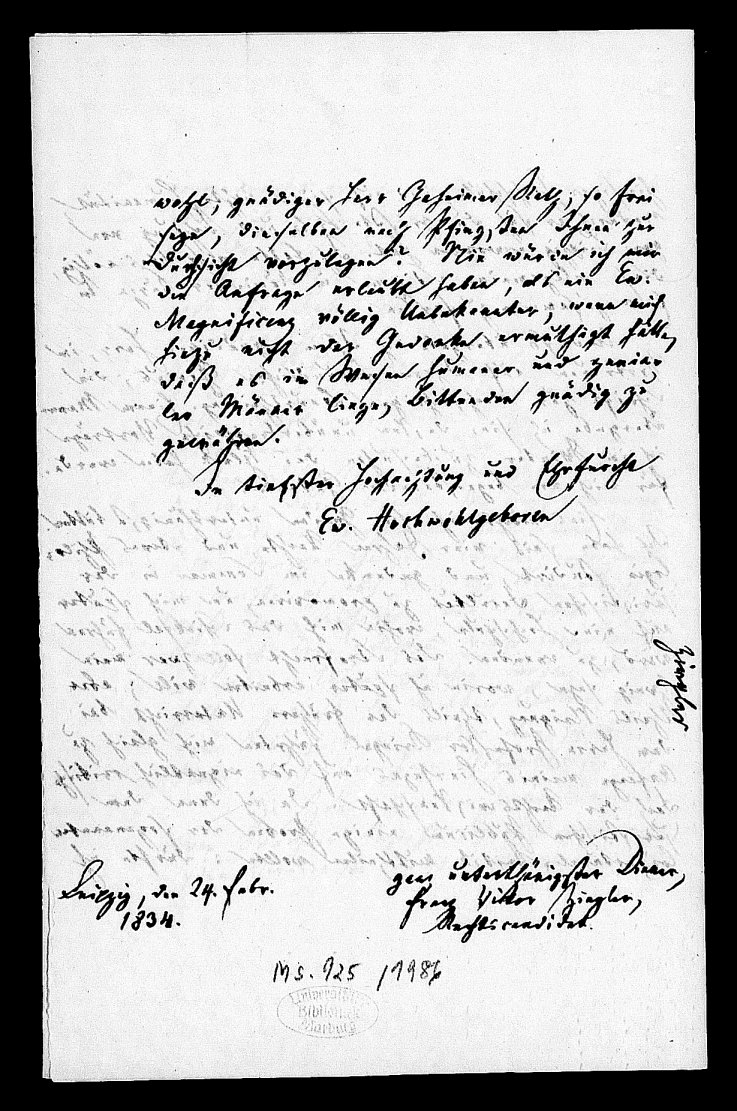 wohl, gnädiger Herr Geheimer Rath, so frei
seyn, dieselben nach Pfingsten Ihnen zur
Durchsicht vorzulegen? Nie würde ich mir
die Anfrage erlaubt haben, als ein Ew.
Magnificenz völlig Unbekannter, wenn mich
hiezu nicht der Gedanke ermuthigt hätte,
daß es im Wesen humaner und genia-
ler Männer liege, Bittenden gnädig zu
gewähren.
In tiefster Hochachtung und Ehrfurcht
Ew. Hochwohlgeboren
ganz unterthänigster Diener,
Franz Viktor Ziegler,
Rechtscandidat.
Leipzig, den 24. Febr.
1834.
Ms. 725 / 1986
Universitäts
Bibliothek
Marburg